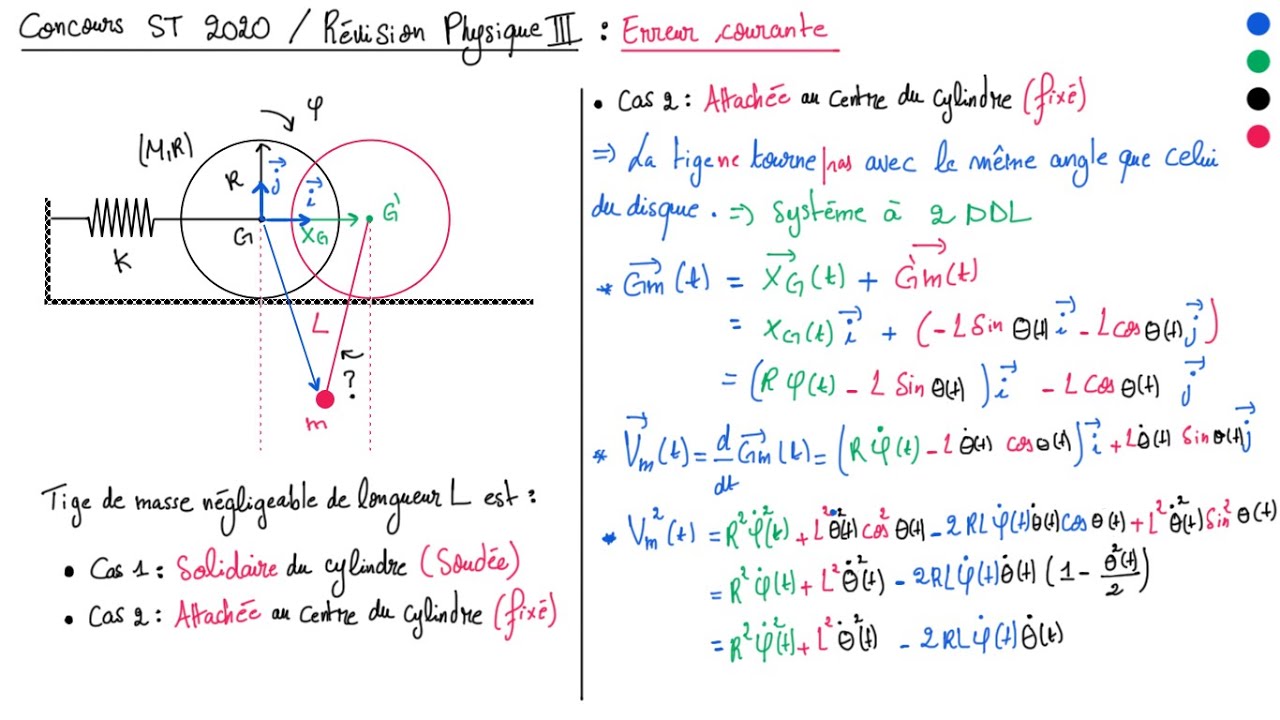 Concours ST 2020 / Révision Physique III : Erreur courante
φ
(M,R)
R
j⃗
i⃗
G
X_G
G'
K
L
?
m
Tige de masse négligeable de longueur L est :
• Cas 1 : Solidaire du cylindre (Soudée)
• Cas 2 : Attachée au centre du cylindre (fixé)
• Cas 2 : Attachée au centre du cylindre (fixé)
⇒ La tige ne tourne pas avec le même angle que celui
du disque. ⇒ Système à 2 DDL
* G⃗m(t) = X⃗_G(t) + G⃗'m(t)
= X_G(t) i⃗ + (-L Sin θ(t) i⃗ - L cos θ(t) j⃗)
= (R φ(t) - L Sin θ(t)) i⃗ - L Cos θ(t) j⃗
* V⃗_m(t) = d/dt G⃗m(t) = (R φ̇(t) - L θ̇(t) cos θ(t)) i⃗ + L θ̇(t) Sin θ(t) j⃗
* V_m²(t) = R² φ̇²(t) + L² θ̇²(t) cos² θ(t) - 2RL φ̇(t) θ̇(t) cos θ(t) + L² θ̇²(t) Sin² θ(t)
= R² φ̇²(t) + L² θ̇²(t) - 2RL φ̇(t) θ̇(t) (1 - θ²(t)/2)
= R² φ̇²(t) + L² θ̇²(t) - 2RL φ̇(t) θ̇(t)